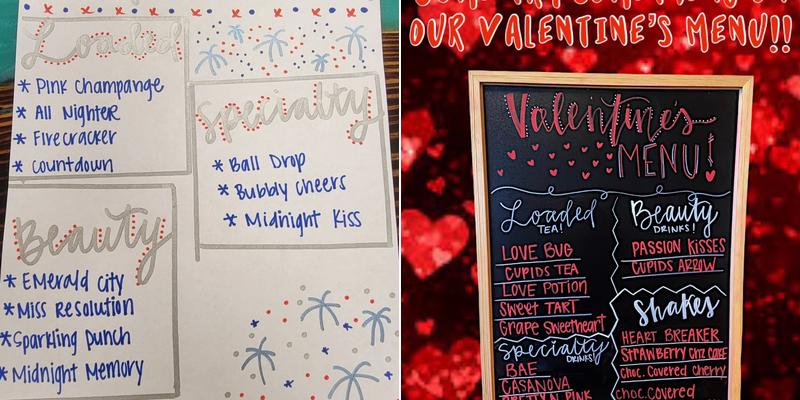 Loaded
* Pink Champange
* All Nighter
* Firecracker
* Countdown
Specialty
* Ball Drop
* Bubbly Cheers
* Midnight Kiss
Beauty
* Emerald City
* Miss Resolution
* Sparkling Punch
* Midnight Memory
OUR VALENTINE'S MENU!!
Valentine's
MENU!
Loaded
TEA!
LOVE BUG
CUPIDS TEA
LOVE POTION
Sweet TART
Grape Sweetheart
Specialty
DRINKS!
BAE
CASANOVA
Beauty
DRINKS!
PASSION KISSES
CUPIDS ARROW
Shakes
HEART BREAKER
STRAWBERRY CHZ CAKE
CHOC. COVERED CHERRY
CHOC. COVERED